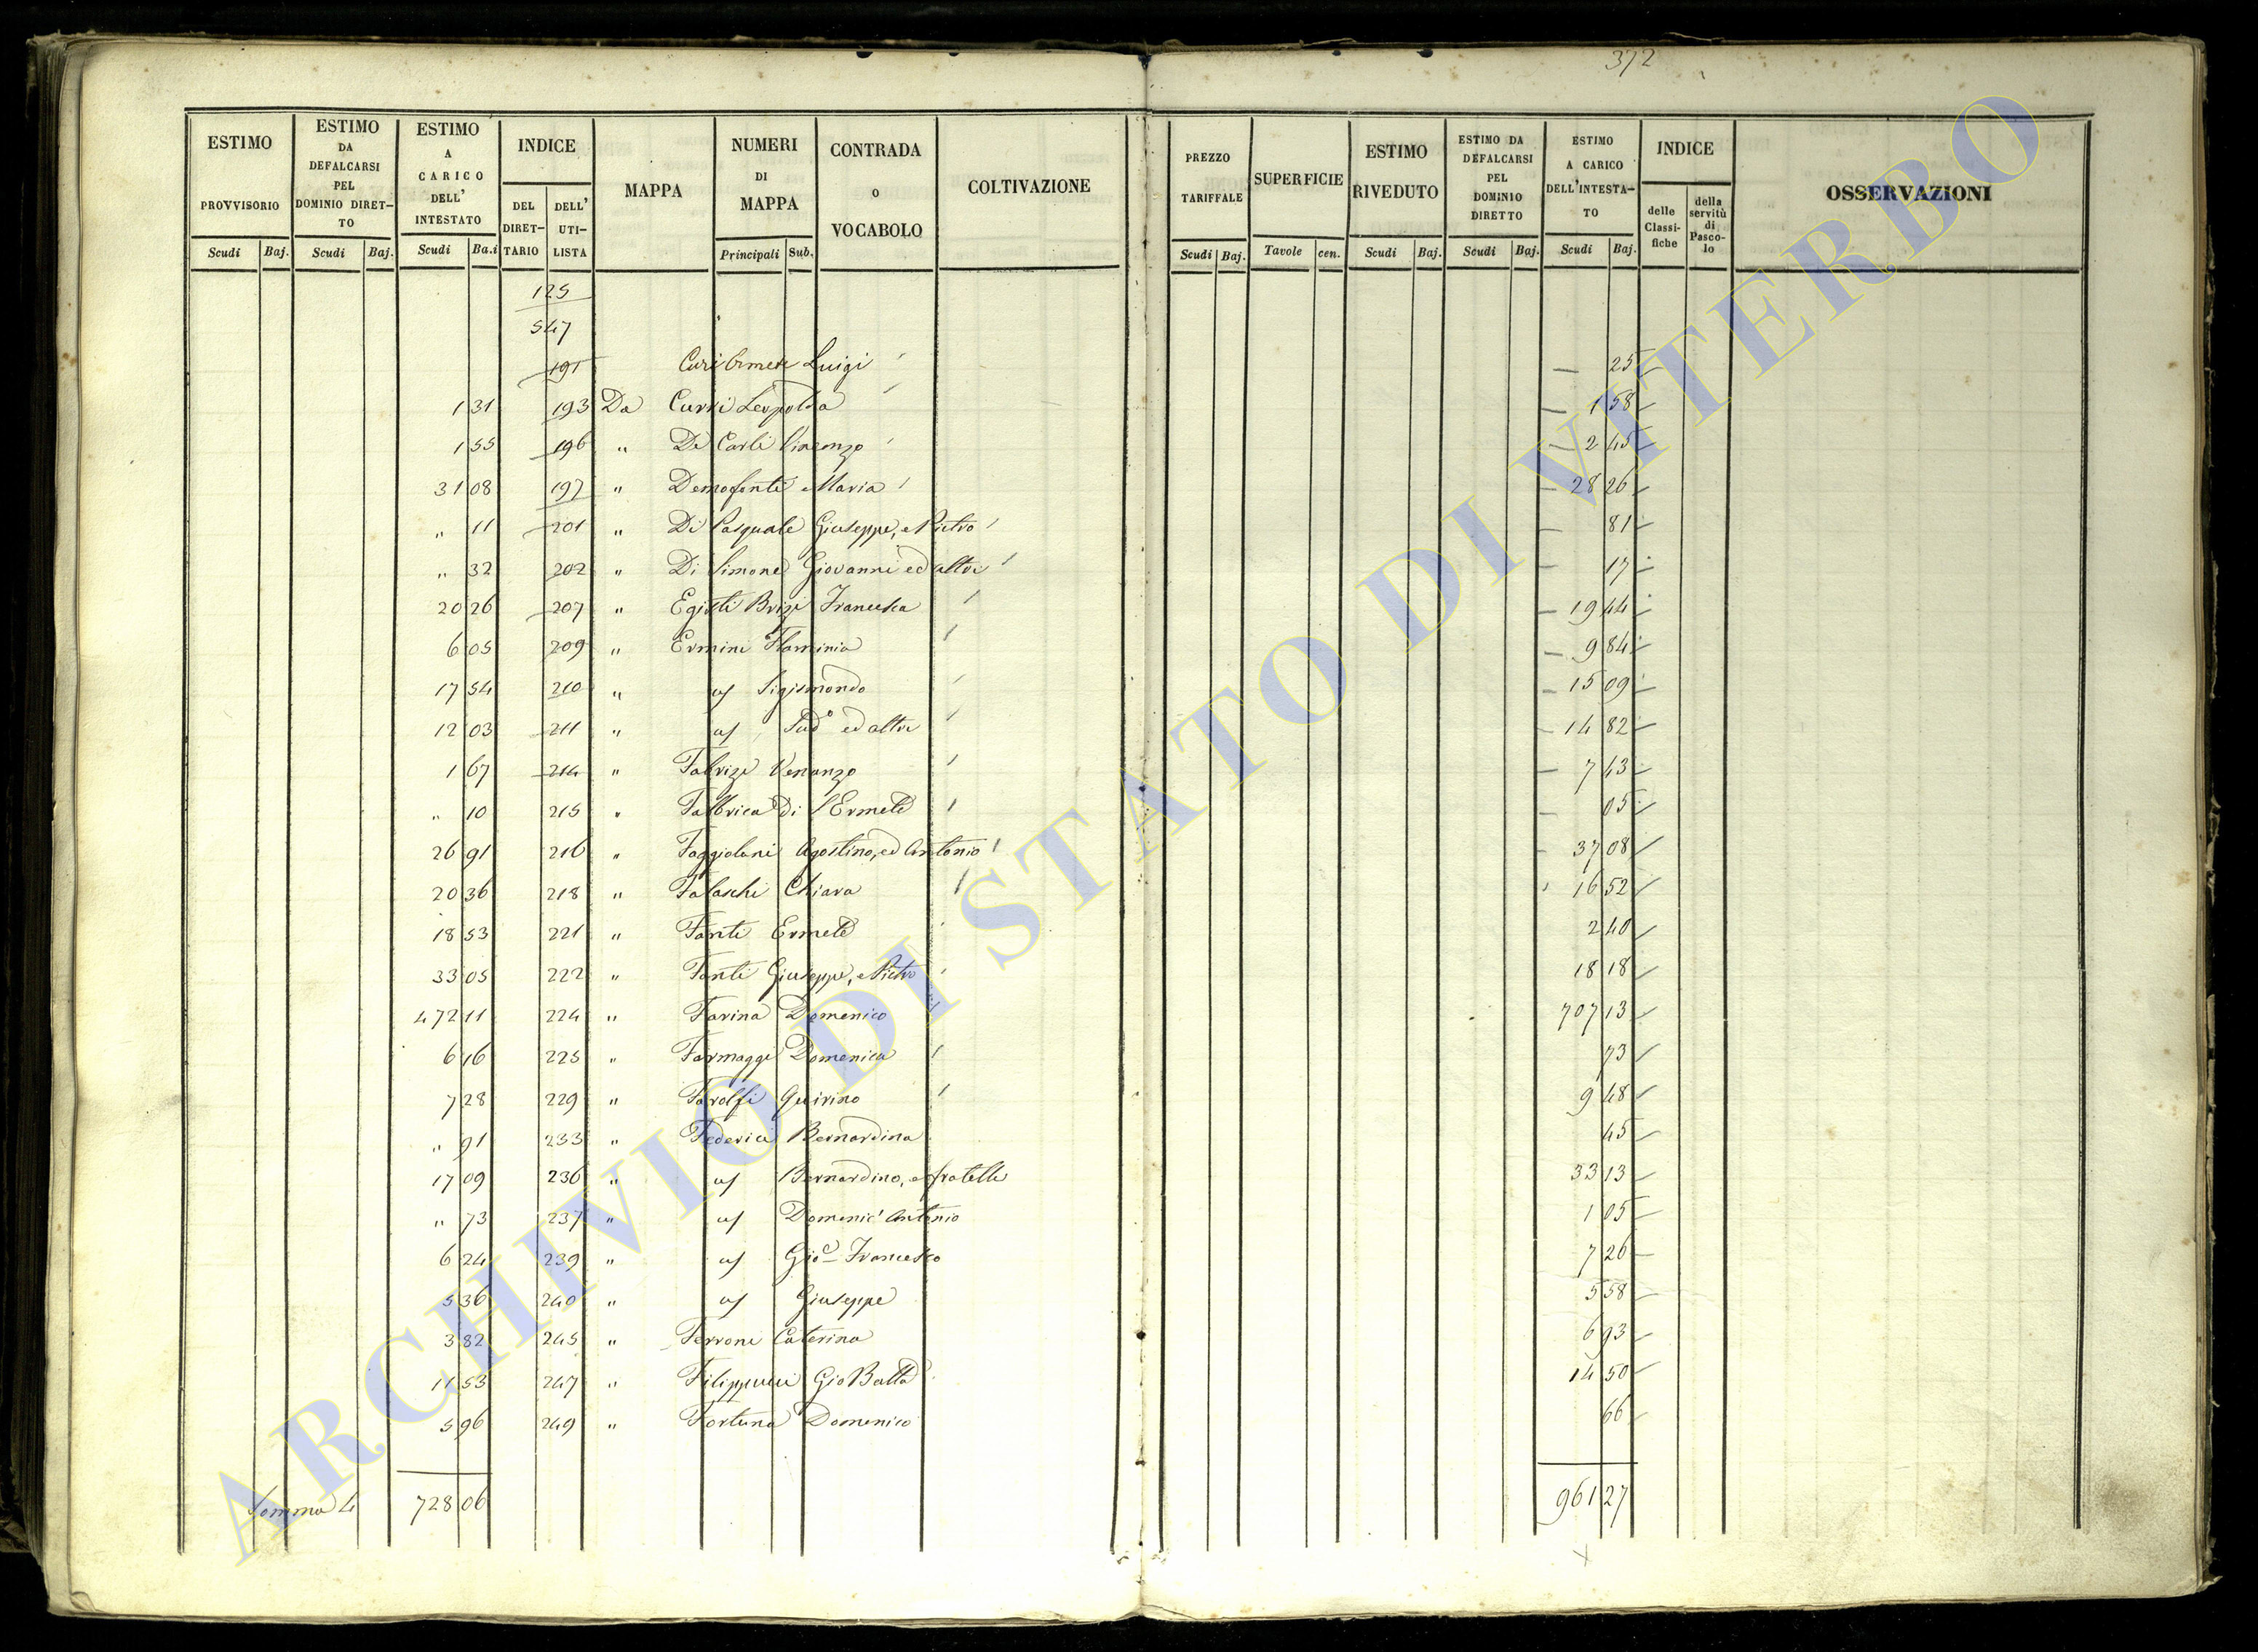 372
ESTIMO PROVVISORIO Scudi Baj.
ESTIMO DA DEFALCARSI PEL DOMINIO DIRETTO Scudi Baj.
ESTIMO A CARICO DELL' INTESTATO Scudi Ba.i
INDICE DEL DIRETTARIO DELL' UTILISTA
MAPPA
NUMERI DI MAPPA Principali Sub.
CONTRADA o VOCABOLO
COLTIVAZIONE
PREZZO TARIFFALE Scudi Baj.
SUPERFICIE Tavole cen.
ESTIMO RIVEDUTO Scudi Baj.
ESTIMO DA DEFALCARSI PEL DOMINIO DIRETTO Scudi Baj.
ESTIMO A CARICO DELL'INTESTATO Scudi Baj.
INDICE delle Classifiche della servitù di Pascolo
OSSERVAZIONI
125
547
191 Luigi 25
1 31 193 Da Curzi Leopolda 1 58
1 55 196 " De Carli Vincenzo 2 45
31 08 197 " Demofonti Maria 28 26
" 11 201 " Di Pasquale Giuseppe, e Pietro 81
" 32 202 " Di Simone Giovanni ed altri 17
20 26 207 " Egisti Brizi Francesca 19 44
6 05 209 " Ermini Flaminia 9 84
17 54 210 " a/ Sigismondo 15 09
12 03 211 " a/ Sud.o ed altri 14 82
1 67 214 " Fabrizi Venanzo 7 43
" 10 215 " Fabbrica di S Ermete 05
26 91 216 " Faggiolani Agostino, ed Antonio 37 08
20 36 218 " Falaschi Chiara 16 52
18 53 221 " Fanti Ermete 2 40
33 05 222 " Fanti Giuseppe, e Pietro 18 18
472 11 224 " Farina Domenico 707 13
6 16 225 " Farmaggi Domenica 73
7 28 229 " Farolfi Quirino 9 48
" 91 233 " Federici Bernardina 45
17 09 236 " a/ Bernardino, e fratelli 33 13
" 73 237 " a/ Domenic' Antonio 1 05
6 24 239 " a/ Gio. Francesco 7 26
5 36 240 " a/ Giuseppe 5 58
3 82 245 " Ferroni Caterina 6 93
11 53 247 " Filippucci Gio Batta 14 50
5 96 249 " Fortuna Domenico 66
Somma 728 06 961 27
ARCHIVIO DI STATO DI VITERBO